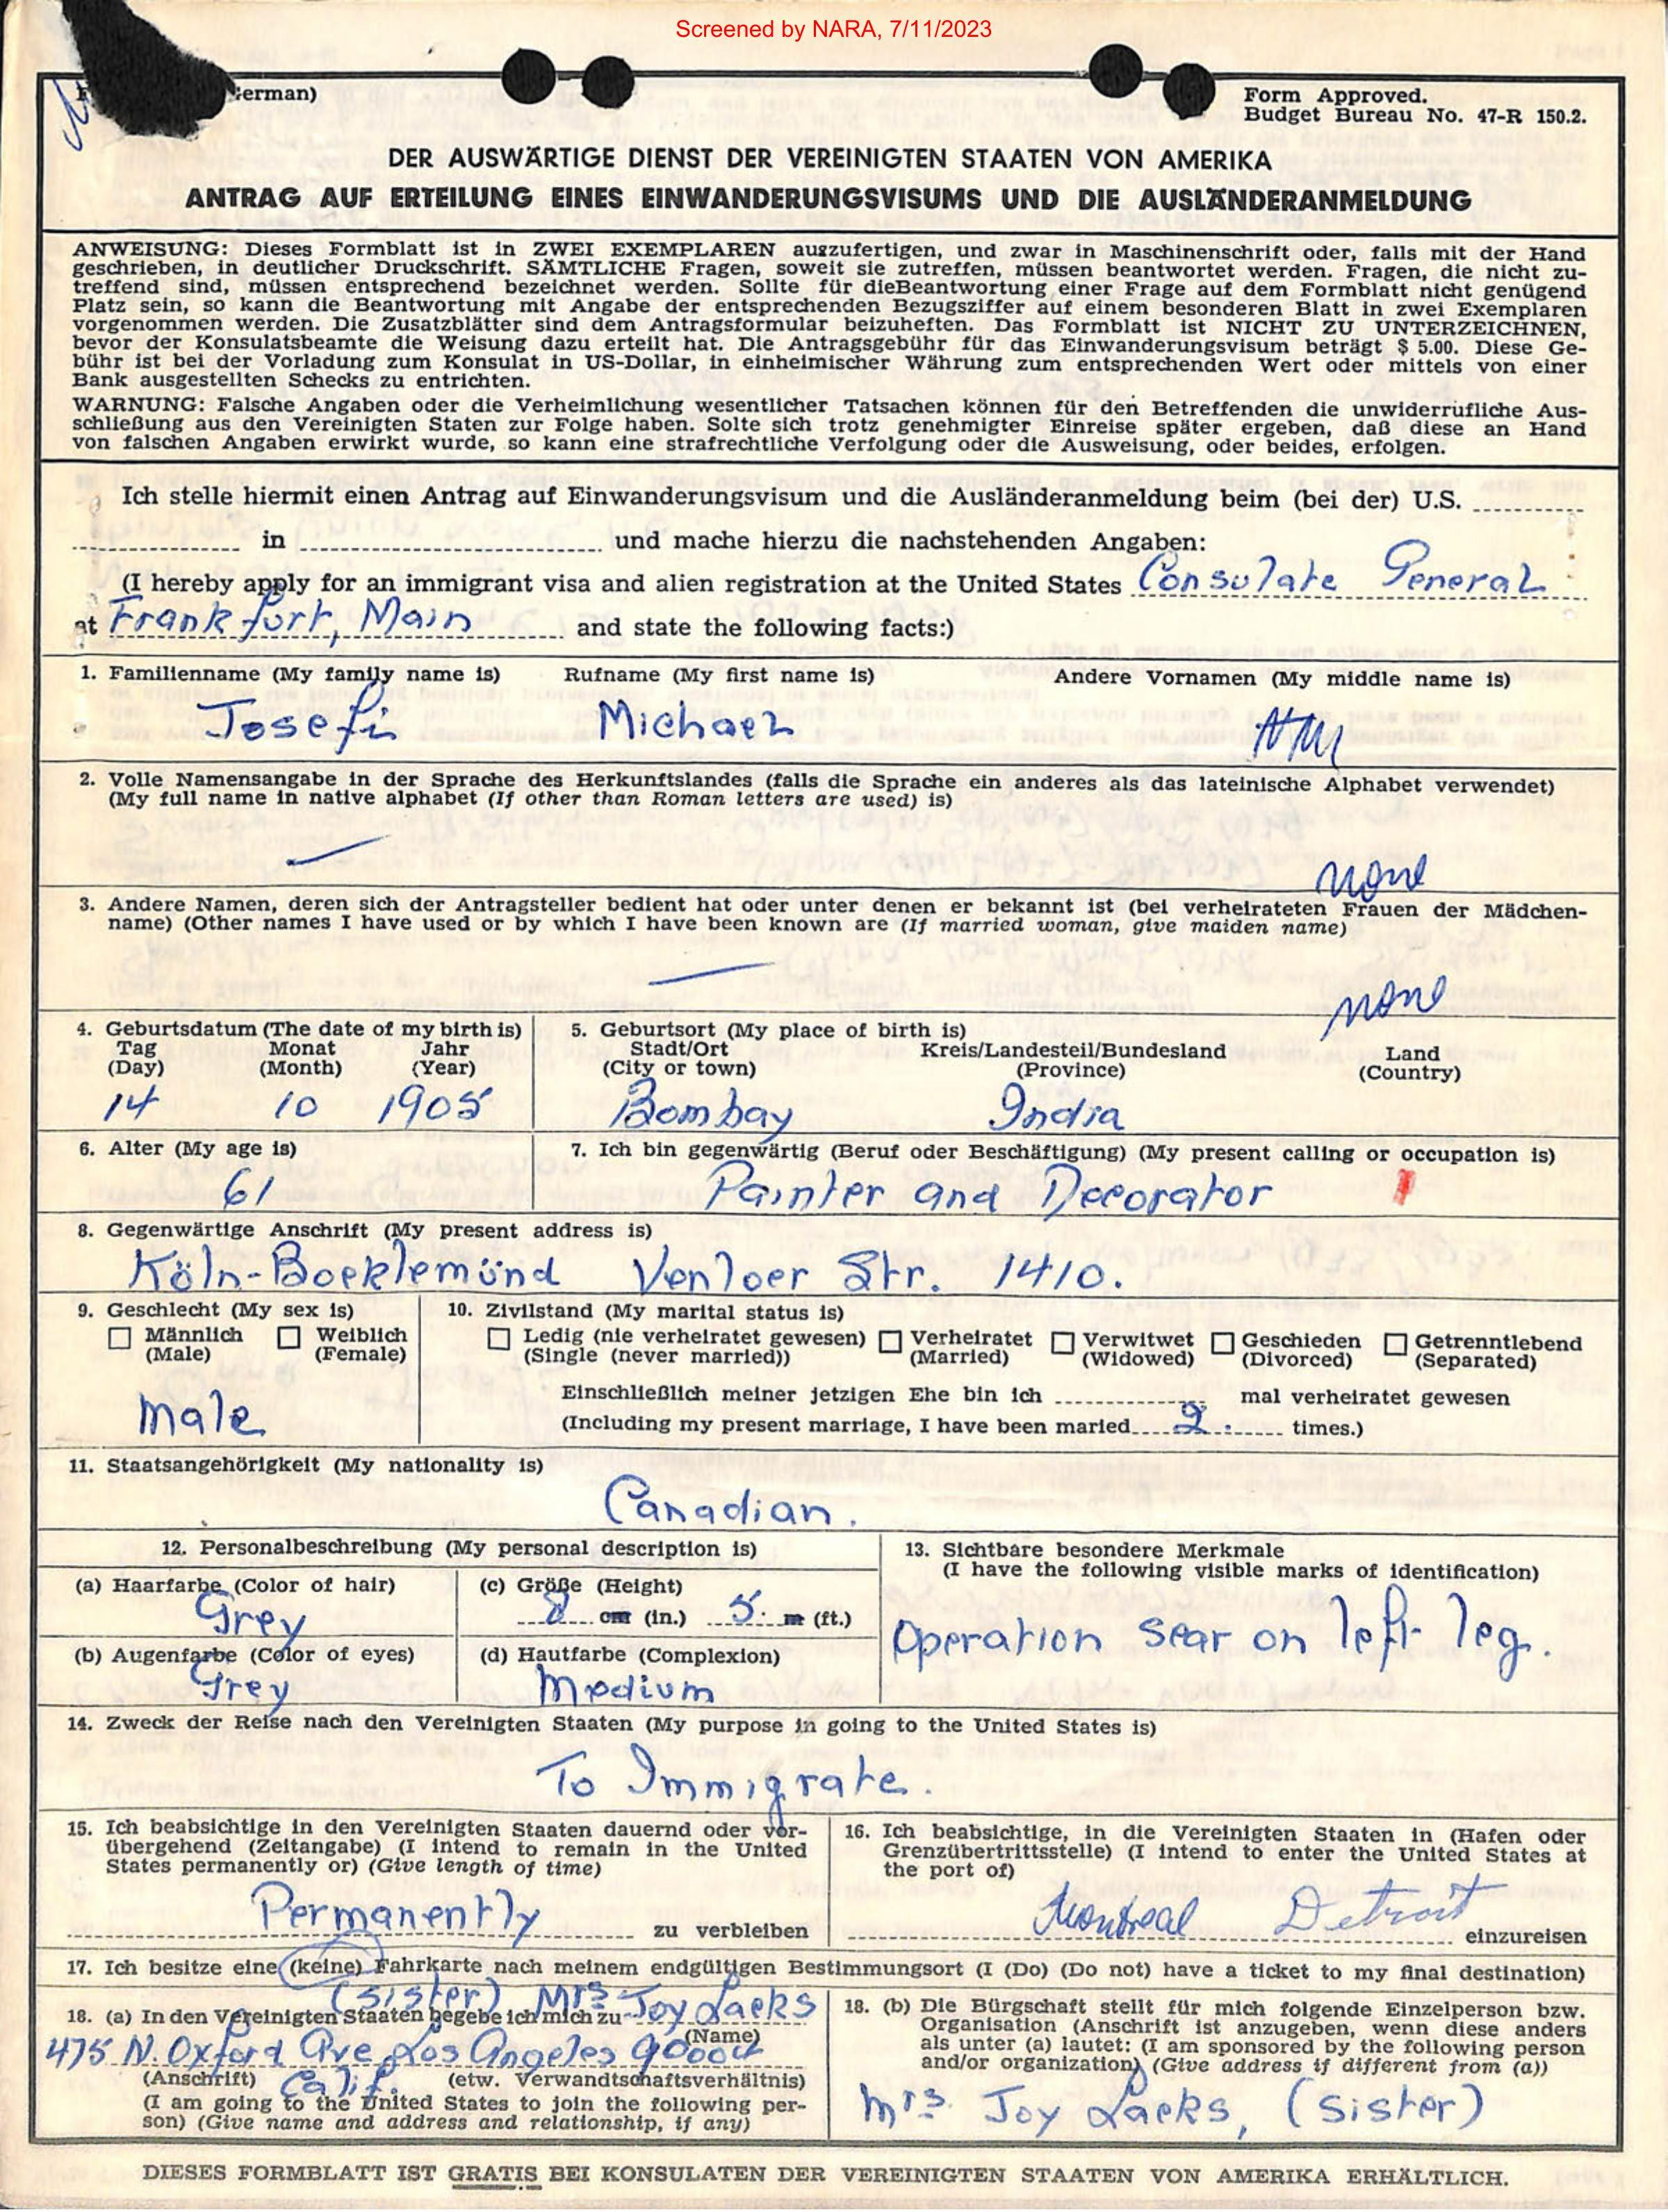 Screened by NARA, 7/11/2023
erman)
Form Approved.
Budget Bureau No. 47-R 150.2.
DER AUSWÄRTIGE DIENST DER VEREINIGTEN STAATEN VON AMERIKA
ANTRAG AUF ERTEILUNG EINES EINWANDERUNGSVISUMS UND DIE AUSLÄNDERANMELDUNG
ANWEISUNG: Dieses Formblatt ist in ZWEI EXEMPLAREN auszufertigen, und zwar in Maschinenschrift oder, falls mit der Hand
geschrieben, in deutlicher Druckschrift. SÄMTLICHE Fragen, soweit sie zutreffen, müssen beantwortet werden. Fragen, die nicht zu-
treffend sind, müssen entsprechend bezeichnet werden. Sollte für dieBeantwortung einer Frage auf dem Formblatt nicht genügend
Platz sein, so kann die Beantwortung mit Angabe der entsprechenden Bezugsziffer auf einem besonderen Blatt in zwei Exemplaren
vorgenommen werden. Die Zusatzblätter sind dem Antragsformular beizuheften. Das Formblatt ist NICHT ZU UNTERZEICHNEN,
bevor der Konsulatsbeamte die Weisung dazu erteilt hat. Die Antragsgebühr für das Einwanderungsvisum beträgt $ 5.00. Diese Ge-
bühr ist bei der Vorladung zum Konsulat in US-Dollar, in einheimischer Währung zum entsprechenden Wert oder mittels von einer
Bank ausgestellten Schecks zu entrichten.
WARNUNG: Falsche Angaben oder die Verheimlichung wesentlicher Tatsachen können für den Betreffenden die unwiderrufliche Aus-
schließung aus den Vereinigten Staten zur Folge haben. Solte sich trotz genehmigter Einreise später ergeben, daß diese an Hand
von falschen Angaben erwirkt wurde, so kann eine strafrechtliche Verfolgung oder die Ausweisung, oder beides, erfolgen.
Ich stelle hiermit einen Antrag auf Einwanderungsvisum und die Ausländeranmeldung beim (bei der) U.S.
in und mache hierzu die nachstehenden Angaben:
(I hereby apply for an immigrant visa and alien registration at the United States Consulate General
at Frankfurt, Main and state the following facts:)
1. Familienname (My family name is) Rufname (My first name is) Andere Vornamen (My middle name is)
Josefi Michael
2. Volle Namensangabe in der Sprache des Herkunftslandes (falls die Sprache ein anderes als das lateinische Alphabet verwendet)
(My full name in native alphabet (If other than Roman letters are used) is)
— none
3. Andere Namen, deren sich der Antragsteller bedient hat oder unter denen er bekannt ist (bei verheirateten Frauen der Mädchen-
name) (Other names I have used or by which I have been known are (If married woman, give maiden name)
— none
4. Geburtsdatum (The date of my birth is) 5. Geburtsort (My place of birth is)
Tag Monat Jahr Stadt/Ort Kreis/Landesteil/Bundesland Land
(Day) (Month) (Year) (City or town) (Province) (Country)
14 10 1905 Bombay India
6. Alter (My age is) 7. Ich bin gegenwärtig (Beruf oder Beschäftigung) (My present calling or occupation is)
61 Painter and Decorator
8. Gegenwärtige Anschrift (My present address is)
Köln-Bocklemünd Venloer Str. 1410.
9. Geschlecht (My sex is) 10. Zivilstand (My marital status is)
Männlich Weiblich Ledig (nie verheiratet gewesen) Verheiratet Verwitwet Geschieden Getrenntlebend
(Male) (Female) (Single (never married)) (Married) (Widowed) (Divorced) (Separated)
Einschließlich meiner jetzigen Ehe bin ich mal verheiratet gewesen
Male (Including my present marriage, I have been maried 2. times.)
11. Staatsangehörigkeit (My nationality is)
Canadian.
12. Personalbeschreibung (My personal description is) 13. Sichtbare besondere Merkmale
(I have the following visible marks of identification)
(a) Haarfarbe (Color of hair) (c) Größe (Height)
Grey 8 cm (in.) 5. m (ft.)
Operation scar on left leg.
(b) Augenfarbe (Color of eyes) (d) Hautfarbe (Complexion)
Grey Medium
14. Zweck der Reise nach den Vereinigten Staaten (My purpose in going to the United States is)
To Immigrate.
15. Ich beabsichtige in den Vereinigten Staaten dauernd oder vor-
übergehend (Zeitangabe) (I intend to remain in the United
States permanently or) (Give length of time)
Permanently zu verbleiben
16. Ich beabsichtige, in die Vereinigten Staaten in (Hafen oder
Grenzübertrittsstelle) (I intend to enter the United States at
the port of)
Montreal Detroit einzureisen
17. Ich besitze eine (keine) Fahrkarte nach meinem endgültigen Bestimmungsort (I (Do) (Do not) have a ticket to my final destination)
(sister) Mrs Joy Lacks
18. (a) In den Vereinigten Staaten begebe ich mich zu
(Name)
475 N. Oxford Ave Los Angeles 90004
(Anschrift) Calif. (etw. Verwandtschaftsverhältnis)
(I am going to the United States to join the following per-
son) (Give name and address and relationship, if any)
18. (b) Die Bürgschaft stellt für mich folgende Einzelperson bzw.
Organisation (Anschrift ist anzugeben, wenn diese anders
als unter (a) lautet: (I am sponsored by the following person
and/or organization) (Give address if different from (a))
Mrs. Joy Lacks, (sister)
DIESES FORMBLATT IST GRATIS BEI KONSULATEN DER VEREINIGTEN STAATEN VON AMERIKA ERHÄLTLICH.